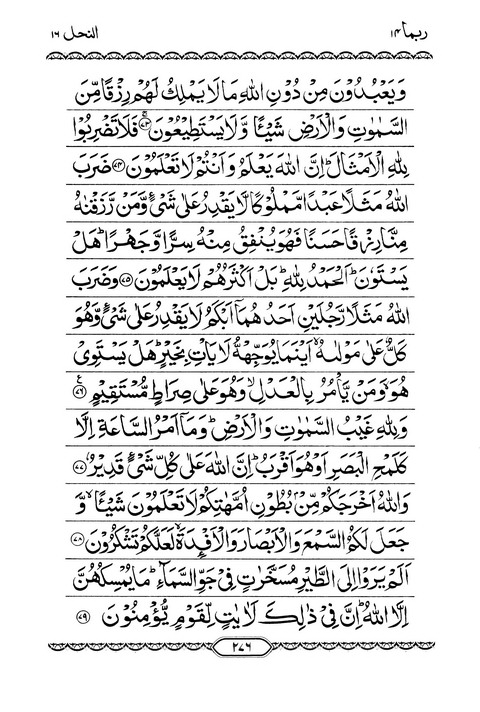 ربما ١٤ النحل ١٦
وَيَعْبُدُوْنَ مِنْ دُوْنِ اللّٰهِ مَا لَا يَمْلِكُ لَهُمْ رِزْقًا مِّنَ
السَّمٰوٰتِ وَالْاَرْضِ شَيْـًٔا وَّلَا يَسْتَطِيْعُوْنَ ۚ﴿٧٣﴾ فَلَا تَضْرِبُوْا
لِلّٰهِ الْاَمْثَالَ ؕ اِنَّ اللّٰهَ يَعْلَمُ وَاَنْتُمْ لَا تَعْلَمُوْنَ ﴿٧٤﴾ ضَرَبَ
اللّٰهُ مَثَلًا عَبْدًا مَّمْلُوْكًا لَّا يَقْدِرُ عَلٰى شَيْءٍ وَّمَنْ رَّزَقْنٰهُ
مِنَّا رِزْقًا حَسَنًا فَهُوَ يُنْفِقُ مِنْهُ سِرًّا وَّجَهْرًا ؕ هَلْ
يَسْتَوٗنَ ؕ اَلْحَمْدُ لِلّٰهِ ؕ بَلْ اَكْثَرُهُمْ لَا يَعْلَمُوْنَ ﴿٧٥﴾ وَضَرَبَ
اللّٰهُ مَثَلًا رَّجُلَيْنِ اَحَدُهُمَاۤ اَبْكَمُ لَا يَقْدِرُ عَلٰى شَيْءٍ وَّهُوَ
كَلٌّ عَلٰى مَوْلٰىهُ ۙ اَيْنَمَا يُوَجِّهْهُّ لَا يَاْتِ بِخَيْرٍ ؕ هَلْ يَسْتَوِيْ
هُوَ ۙ وَمَنْ يَّاْمُرُ بِالْعَدْلِ ۙ وَهُوَ عَلٰى صِرَاطٍ مُّسْتَقِيْمٍ ﴿٧٦﴾ ع
وَلِلّٰهِ غَيْبُ السَّمٰوٰتِ وَالْاَرْضِ ؕ وَمَاۤ اَمْرُ السَّاعَةِ اِلَّا
كَلَمْحِ الْبَصَرِ اَوْ هُوَ اَقْرَبُ ؕ اِنَّ اللّٰهَ عَلٰى كُلِّ شَيْءٍ قَدِيْرٌ ﴿٧٧﴾
وَاللّٰهُ اَخْرَجَكُمْ مِّنْۢ بُطُوْنِ اُمَّهٰتِكُمْ لَا تَعْلَمُوْنَ شَيْـًٔا ۙ وَّ
جَعَلَ لَكُمُ السَّمْعَ وَالْاَبْصَارَ وَالْاَفْـِٕدَةَ ۙ لَعَلَّكُمْ تَشْكُرُوْنَ ﴿٧٨﴾
اَلَمْ يَرَوْا اِلَى الطَّيْرِ مُسَخَّرٰتٍ فِيْ جَوِّ السَّمَآءِ ؕ مَا يُمْسِكُهُنَّ
اِلَّا اللّٰهُ ؕ اِنَّ فِيْ ذٰلِكَ لَاٰيٰتٍ لِّقَوْمٍ يُّؤْمِنُوْنَ ﴿٧٩﴾
٢٧٦